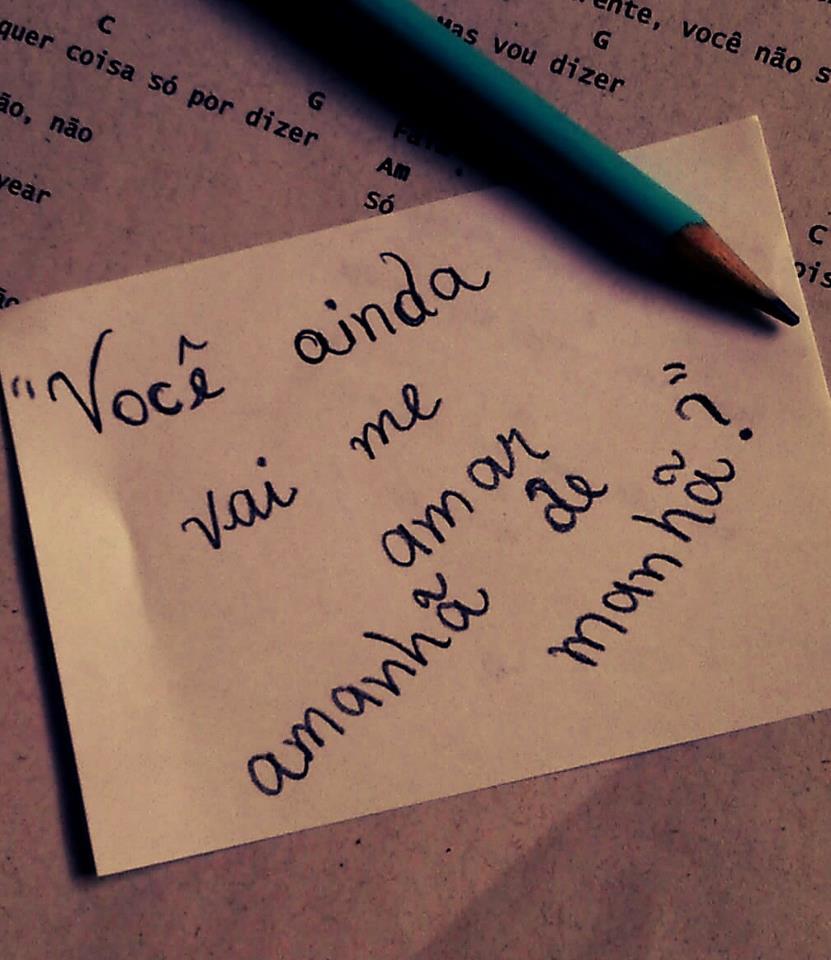 C
quer coisa só por dizer
G
ão, não
year
Mas vou dizer
G
você não
Am
Só
C
"Você ainda
vai me
amar
amanhã de
manhã?"